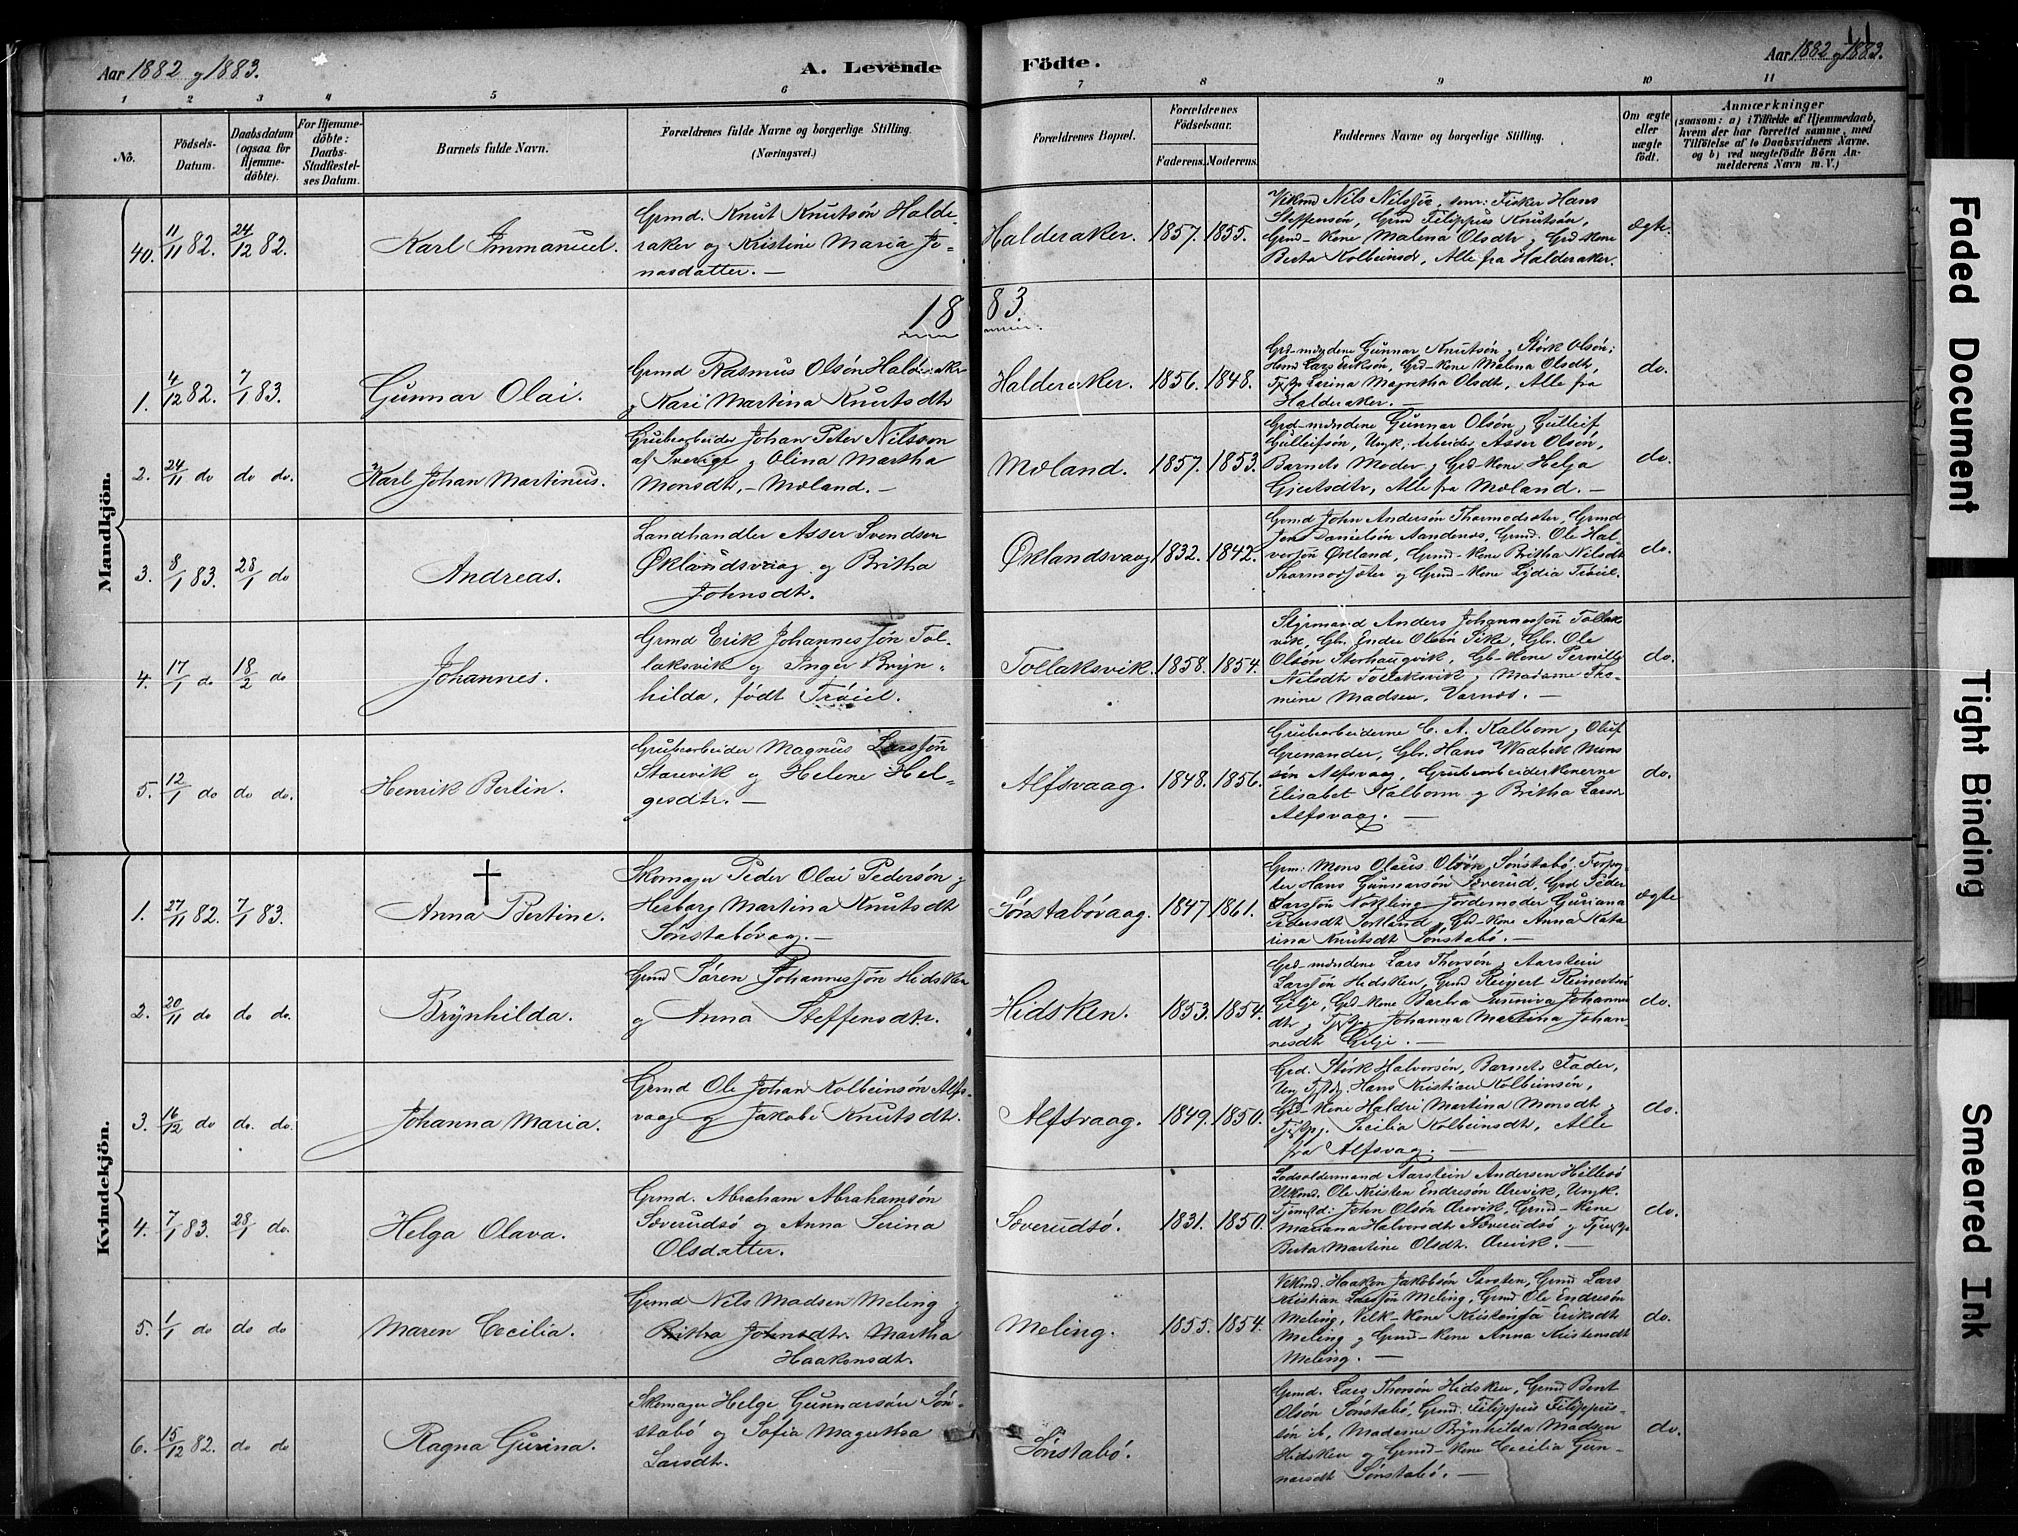 Aar 1882 g 1883.
A. Levende Födte.
Aar 1882 g 1883.
11
1 2 3 4 5 6 7 8 9 10 11
No.
Födsels-
Datum.
Daabsdatum
(ogsaa for
Hjemme-
döbte).
For Hjemme-
döbte:
Daabs-
Stadfæstel-
ses Datum.
Barnets fulde Navn.
Forældrenes fulde Navne og borgerlige Stilling.
(Næringsvei.)
Forældrenes Bopæl.
Forældrenes
Födselsaar.
Faderens. Moderens.
Faddernes Navne og borgerlige Stilling.
Om ægte
eller
uægte
födt.
Anmærkninger
(saasom: a) i Tilfælde af Hjemmedaab,
hvem der har forrettet samme, med
Tilföielse af to Daabsvidners Navne.
og b) ved uægtefödte Börn An-
melderens Navn m. V.)
Mandkjön.
40. 11/11 82. 24/12 82.
Karl Immanuel.
Grmd. Knut Knutsøn Halde-
raker og Kristine Maria Jo-
nasdatter. —
Halderaker. 1857. 1855.
Nils Nilssøn, Fisker Hans
Steffensøn, Grmd Filippus Knutsøn,
Grmd-Kone Malena Olsdtr, Grd-Kone
Berta Kolbeinsdr, Alle fra Halderaker.
Ægte.
1883.
1. 4/12 82. 7/1 83.
Gunnar Olai.
Grmd Rasmus Olsøn Halderaker
g Kari Martina Knutsdtr
Halderaker. 1856. 1848.
Grd-mændene Gunnar Knutsøn g Størk Olsøn,
Lars Eriksøn, Grd-Kone Malena Olsdtr,
Larina Magretha Olsdtr, Alle fra
Halderaker. —
do.
2. 24/11 do do do.
Karl Johan Martinus.
Grubearbeider Johan Peter Nilsson
af Sverige g Olina Martha
Monsdtr, — Moland. —
Moland. 1857. 1853.
Grd-mændene Gunnar Olsøn g Gulleif
Gulleifsøn, Ungk. Arbeider Asser Olsøn,
Barnets Moder g Grd-Kone Helga
Gjertsdtr, Alle fra Moland. —
do.
3. 8/1 83. 28/1 do
Andreas.
Landhandler Asser Svendsen
Øklandsvaag og Britha
Johnsdtr.
Øklandsvaag 1832. 1842.
Grmd John Andersøn Thormodsæter, Grmd
Jens Danielsøn Aandenes, Grmd. Ole Hal-
vorsøn Økland, Grmd-Kone Britha Nilsdtr
Thormodsæter og Grmd-Kone Lydia Trøiel.
do.
4. 17/1 do 18/2 do
Johannes.
Grmd Erik Johannessøn Tol-
laksvik og Inger Bryn-
hilda, født Trøiel.
Tollaksvik. 1858. 1854.
Styrmand Anders Johannessøn Tollak-
vik, Gbr. Endre Olsøn Eike, Gbr. Ole
Olsøn Storhaugvik, Gb-Kone Pernille
Nilsdtr Tollaksvik g Madame Tho-
mine Madsen, Varnes. —
do.
5. 12/1 do do do.
Henrik Bertin.
Grubearbeider Magnus Larssøn
Starevik og Helene Hel-
gesdtr. —
Alfsvaag. 1848. 1856.
Grubearbeiderne C. A. Kalbom g Oluf
Grenander, Gbr. Hans Waadbek Mons-
søn Alfsvaag, Grubearbeiderkonerne
Elisabet Kalbom g Britha Larsdr
Alfsvaag. —
do.
Kvindekjön.
1. 27/11 82. 7/1 83.
†
Anna Bertine.
Skomager Peder Olai Pedersøn g
Herborg Martina Knutsdtr
Sønstabøvaag. —
Sønstabøvaag. 1847 1861.
Grm: Mons Olaus Olsøn Sønstabø, Forpag-
ter Hans Gunnarsøn Sæverud, Grd Peder
Larssøn Nottling, Jordemoder Guriana
Pedersdtr Sortland, g Grd-Kone Anna Kata-
rina Knutsdtr Sønstabø. —
ægte
2. 20/11 do do do.
Brynhilda.
Grmd Søren Johannessøn Hidsken
og Anna Steffensdtr.
Hidsken. 1853. 1854.
Grd-mændene Lars Thorsøn g Aarstein
Larssøn Hidsken, Grmd Reigert Reinertsøn
Gelje, Grd-Kone Barbra Sunniva Johannes-
dtr g Johanna Martina Johan-
nesdtr Gelje. —
do.
3. 16/12 do do. do.
Johanna Maria.
Grmd Ole Johan Kolbeinsøn Alfs-
vaag g Jakobe Knutsdtr.
Alfsvaag. 1849. 1850.
Grd. Størk Halvorsøn, Barnets Fader,
Hans Kristian Kolbeinsøn,
Grd-Kone Haldri Martina Monsdtr g
Cecilia Kolbeinsdtr, Alle
fra Alfsvaag. —
do.
4. 7/1 83. 28/1 do.
Helga Olava.
Grmd. Abraham Abrahamsøn
Sæverudsø og Anna Serina
Olsdatter.
Sæverudsø. 1831. 1850.
Lodsoldermand Aarstein Andersen Hillesø
Ole Kristen Endresøn Arevik, Ungk.
John Olsøn Arevik, Grmd-Kone
Mariana Halvorsdtr Sæverudsø g
Berta Martine Olsdtr. Arevik. —
do.
5. 1/1 do do do
Maren Cecilia.
Grmd Nils Madsen Meling g
Britha Johnsdtr. Martha
Haakonsdtr.
Meling. 1855. 1854.
Haakon Jakobsøn, Grmd Lars
Kristian Larssøn Meling, Grmd Ole Endresøn
Meling, Kone Kristensa Eriksdtr
Meling g Grmd-Kone Anna Kristensdtr
Meling. —
do.
6. 15/12 82. do do
Ragna Gurina.
Skomager Helge Gunnarsøn Søn-
stabø og Sofia Magretha
Larsdtr.
Sønstabø.
Grmd. Lars Thorsøn Hidsken, Grmd Bent
Olsøn Sønstabø, Grmd. Filippus Filippus-
søn ib, Madame Brynhilda Madsen
Hidsken og Grmd-Kone Cecilia Gun-
narsdtr Sønstabø. —
do.
Faded Document
Tight Binding
Smeared Ink